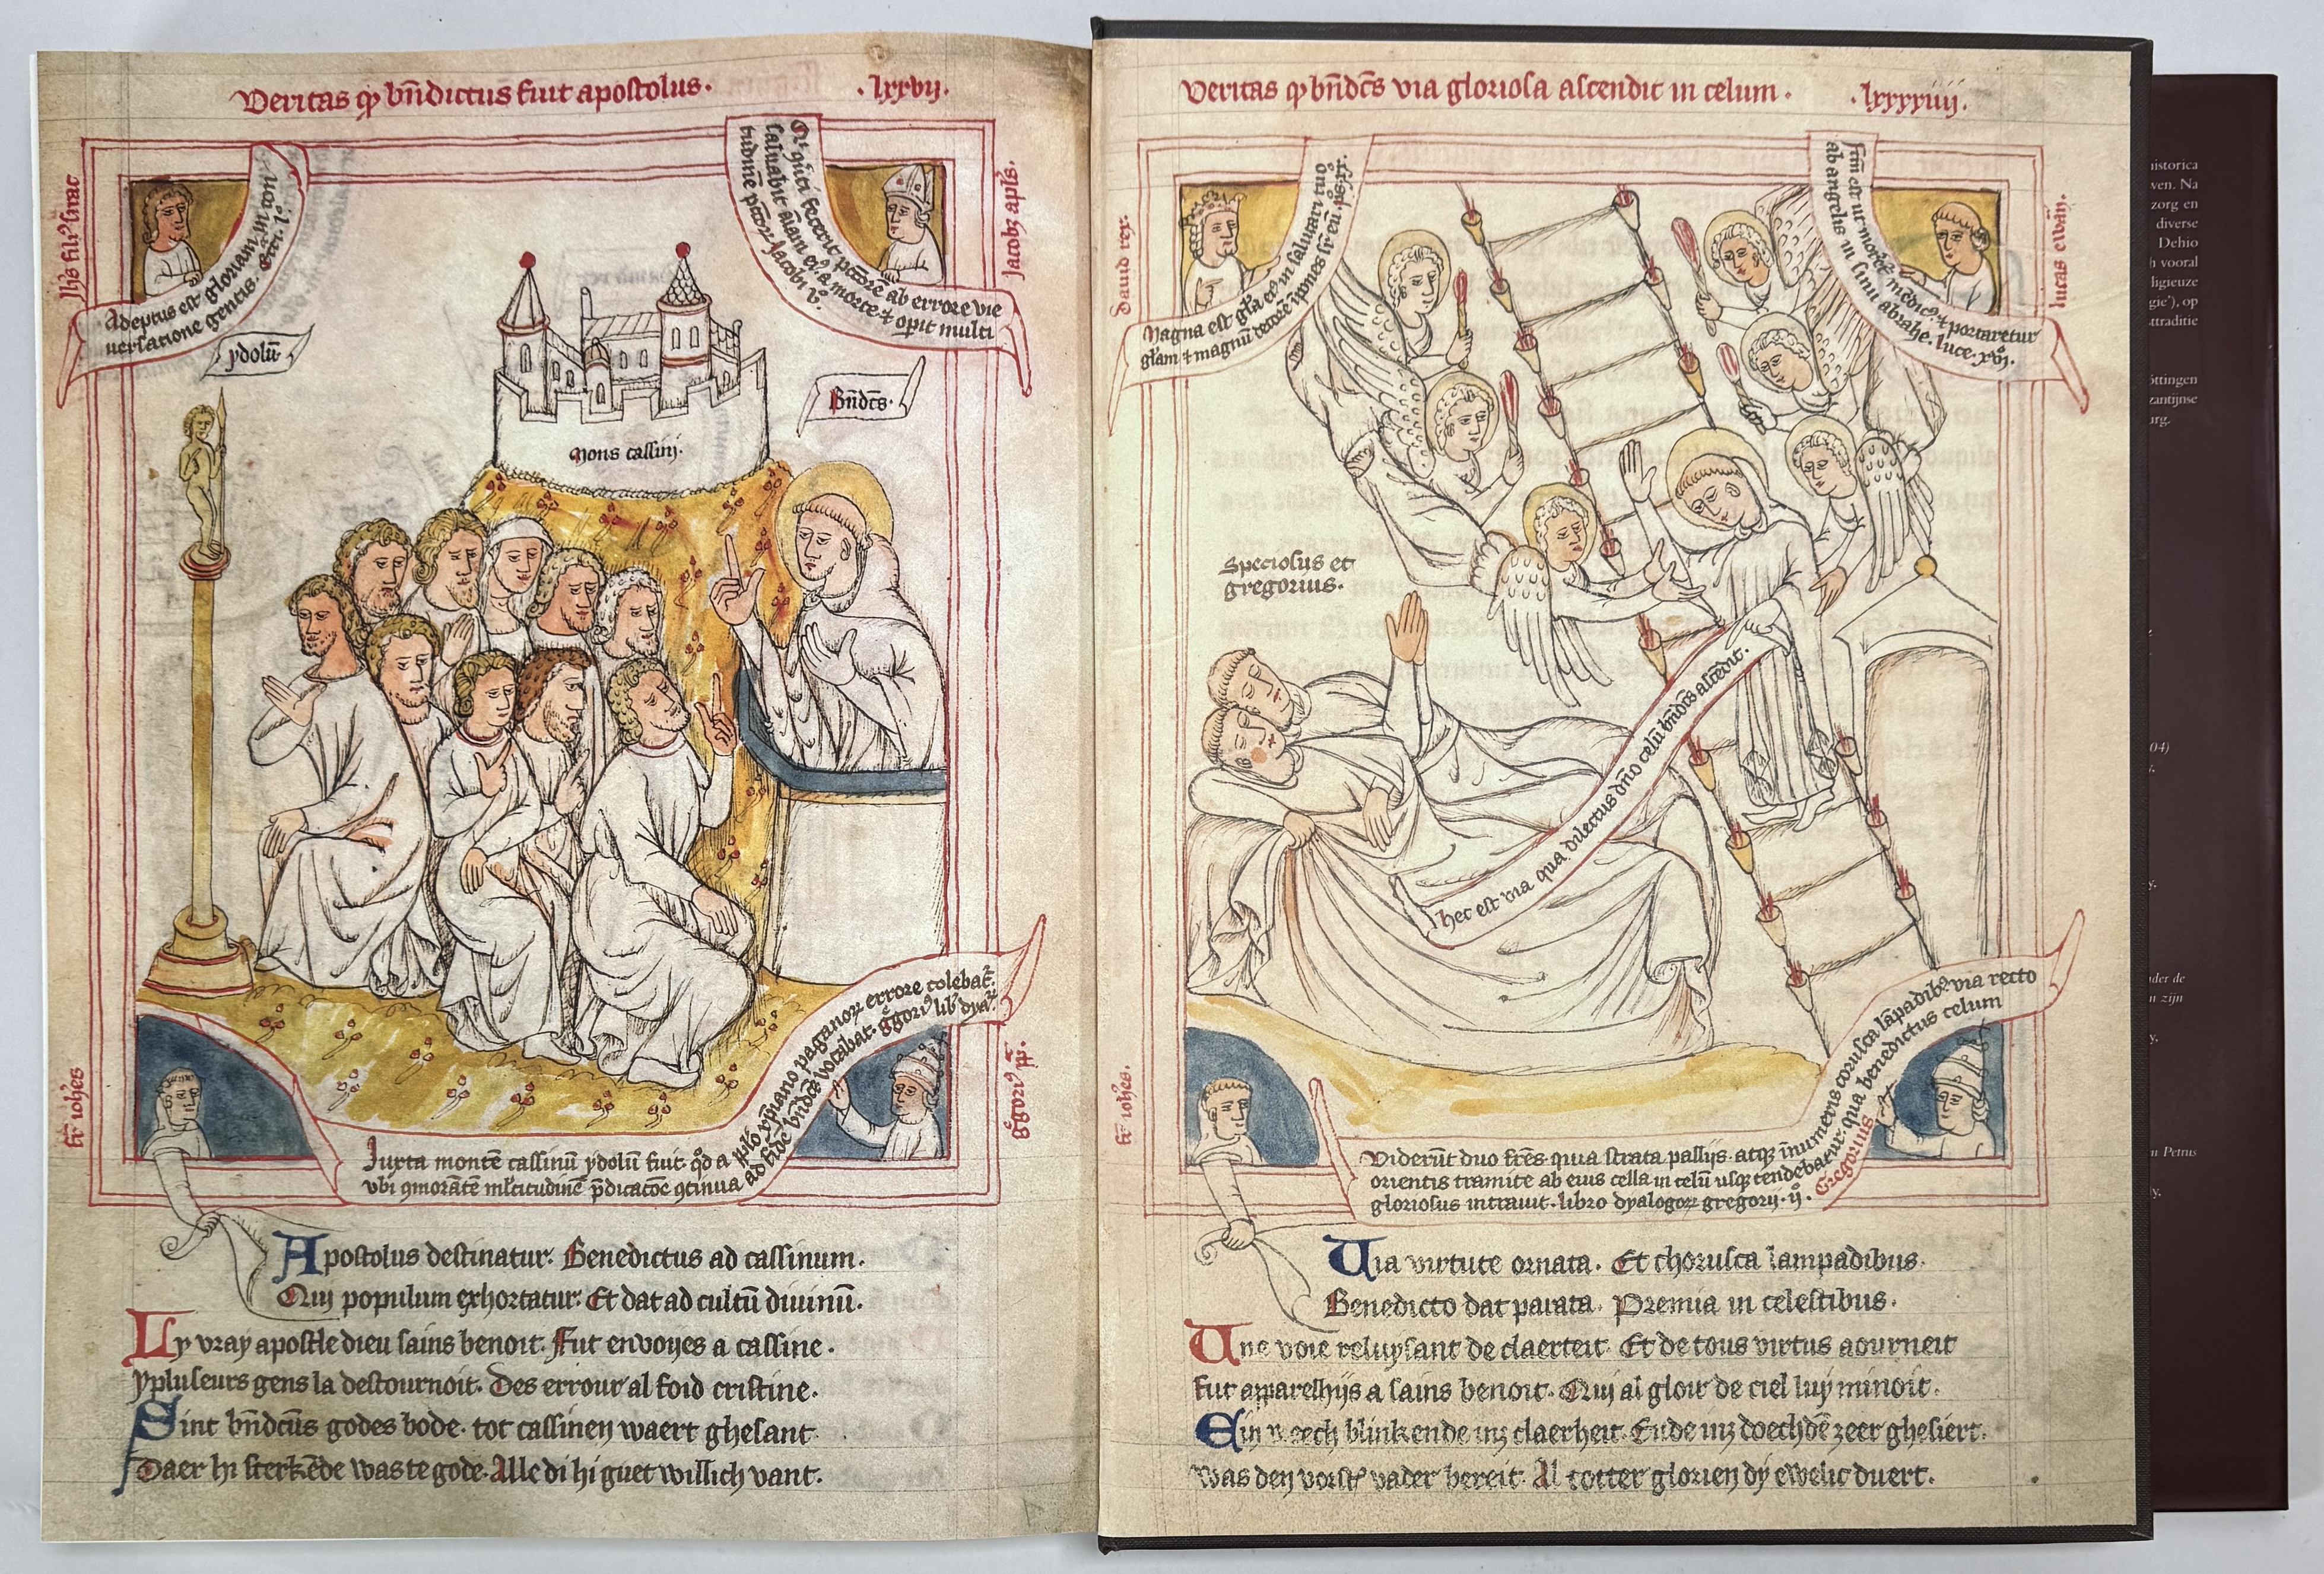 Veritas qp bn̄dictus fuit apostolus. .lxxvij.
Jh̄s fili9 sirac
Adeptus est gloriam in con
uersatione gentis. Eccī. l°
ydolū
Qi q̄uti fecerit pccōrē ab errore vie
saluabit āiam ei9 a morte ⁊ opit multi
tudinē pccōꝝ Jacobi v°.
Jacob9 apl̄s.
Bn̄dc̄s.
mons cassinj.
fr̄ ioh̄es
Juxta montē cassinū ydolū fuit. qd̄ a pl̄o xp̄iano paganoꝝ errore colebat᷑.
vbi ꝯmorātē ml̄titudinē p̄dicatōe ꝯtinua ad fidē bn̄dc̄s vocabat. ḡgori9 lib̄ dyaꝝ
ḡgori9 pp̄.
Apostolus destinatur. Benedictus ad cassinum.
Quj populum exhortatur. Et dat ad cultū diuinū.
Ly vray apostle dieu sains benoit. Fut envoyes a cassine.
ypluseurs gens la destournoit. Des errour al foid cristine.
Sint bn̄dcūs godes bode. tot cassinen waert ghesant
Daer hi sterkēde was te gode. Alle di hi guet willich vant.
Veritas qp bn̄dc̄s via gloriosa ascendit in celum. .lxxxxiiij.
Dauid rex.
Magna est gl̄a ei9 in salutari tuo
gl̄am ⁊ magnū decorē īpones sr̄ eū. ps. xx.
fcm̄ est ut morēt᷑ mēdic9 ⁊ portaretur
ab angelis in sinū abrahe. luce. xvj.
lucas ewān.
Speciosus et
gregorius.
hec est via qua dilectus dn̄o celū bn̄dc̄s ascēdit.
fr̄ ioh̄es.
Viderūt duo fr̄es. quia strata pallijs. atqꝫ īnumeris corusca lāpadib9. via recto
orientis tramite ab eius cella in celū usqꝫ tendebatur. qua benedictus celum
gloriosus intrauit. libro dyalogoꝝ gregorij. ij°.
Gregorius
Via virtute ornata. Et chorusca lampadibus.
Benedicto dat parata. Premia in celestibus.
Une voie reluysant de claerteit. Et de tous virtus aourneit
fut apparelhijs a sains benoit. Quj al gloir de ciel luy minoit.
Ein weech blinkende inz claerheit. Ende inz doechdē zeer ghesiert.
Was den vorst᷑ vader bereit. Al totter glorien dy ewelic duert.
historica
ven. Na
zorg en
diverse
Dehio
h vooral
ligieuze
gie'), op
sttraditie
öttingen
zantijnse
urg.
04)
nder de
n zijn
n Petrus